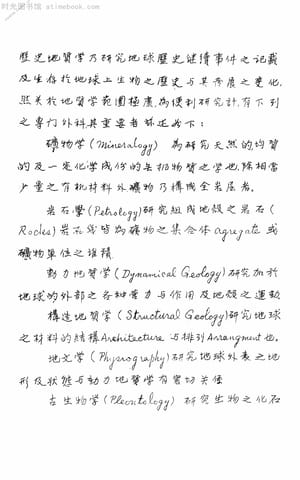 时光图书馆 atimebook.com
歷史地質学乃研究地球歷史継續事件之记載
及生存於地球上生物之歷史与其發展之变化,
然关於地質学范围極廣,為便利研究計,有下列
之专门分科,其重要者畧述如下:
礦物学 (Mineralogy) 為研究天然的均質
的及一定化学成份的无机物質之学也,除相當
少量之有机材料外礦物乃構成全岩层者。
岩石学 (Petrology) 研究組成地殼之岩石 (
Rocks) 岩石或皆為礦物之集合体 agregate 或
礦物单位之堆積
動力地質学 (Dynamical Geology) 研究加於
地球的外部之各种营力与作用及地殼之運動
構造地質学 (Structural Geology) 研究地球
之材料的結構 Architecture 与排列 Arrangment 也。
地文学 (Physrography) 研究地球外表之地
形及状態与動力地質学有密切关係
古生物学 (Pleontology) 研究生物之化石